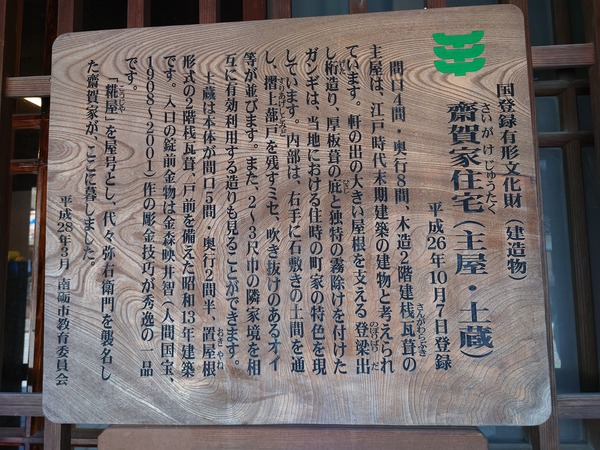 国登録有形文化財（建造物）
さいがけじゅうたく
齋賀家住宅（主屋・土蔵）
平成26年10月7日登録
間口4間・奥行8間、木造2階建桟瓦葺の
さんがわらぶき
主屋は、江戸時代末期建築の建物と考えられ
ています。軒の出の大きい屋根を支える登梁出
のぼりばり だ
し桁造り、厚板葺の庇と独特の霧除けを付けた
ガンギは、当地における往時の町家の特色を現
しています。内部は、右手に石敷きの土間を通
し、摺上蔀戸を残すミセ、吹き抜けのあるオイ
等が並びます。また、2・3尺巾の隣家境を相
互に有効利用する造りも見ることができます。
土蔵は本体が間口5間・奥行2間半、置屋根
おき やね
形式の2階桟瓦葺、戸前を備えた昭和13年建築
です。入口の錠前金物は金森映井智（人間国宝、
1908〜2001）作の彫金技巧が秀逸の一品
です。
「糀屋」を屋号とし、代々弥右衛門を襲名し
こうじや
た齋賀家が、ここに暮しました。
平成28年3月 南砺市教育委員会